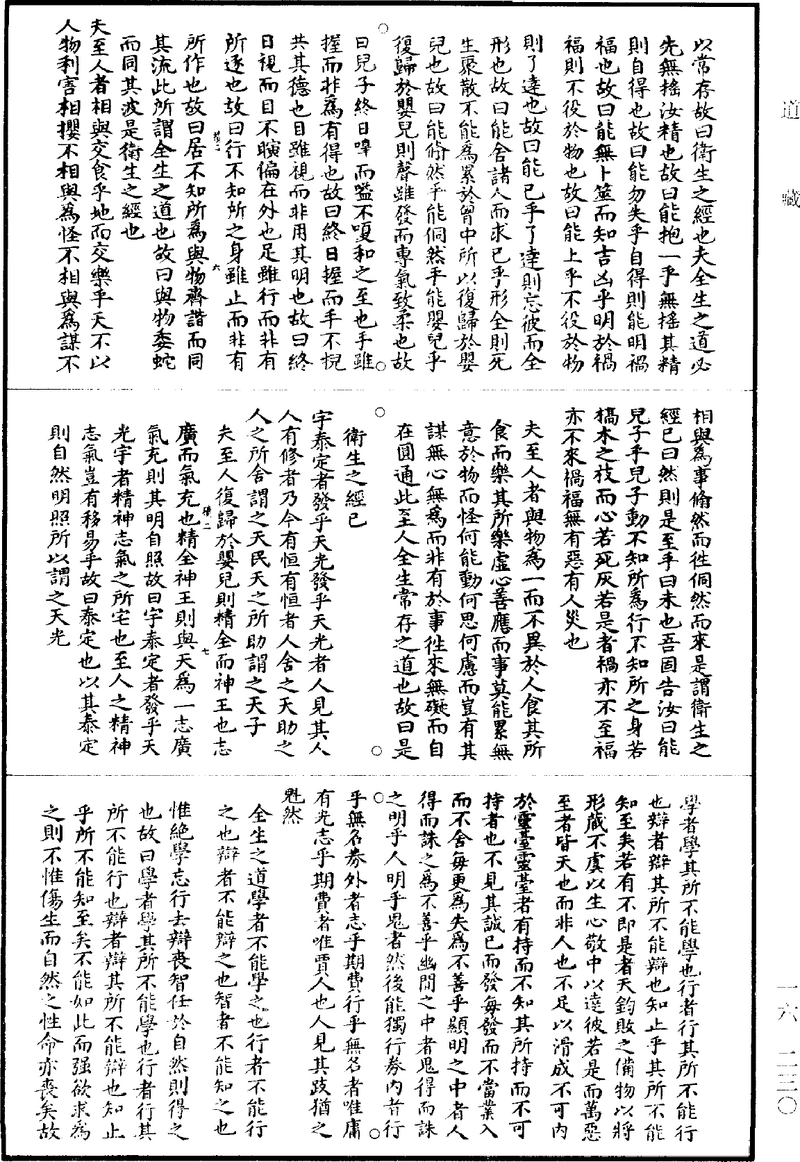 道藏
以常存故曰衛生之經也夫全生之道必
先無搖汝精也故曰能抱一乎無搖其精
則自得也故曰能勿失乎自得則能明禍
福也故曰能無卜筮而知吉凶乎明於禍
福則不役於物也故曰能上乎不役於物
則了達也故曰能已乎了達則忘彼而全
形也故曰能舍諸人而求已乎形全則死
生聚散不能為累於胷中所以復歸於嬰
兒也故曰能翛然乎能侗然乎能嬰兒乎
復歸於嬰兒則聲雖發而專氣致柔也故
曰兒子終日嗥而嗌不嗄和之至也手雖
握而非為有得也故曰終日握而手不掜
共其德也目雖視而非用其明也故曰終
日視而目不瞚偏在外也足雖行而非有
所逐也故曰行不知所之身雖止而非有
所作也故曰居不知所為與物齊諧而同
其流此所謂全生之道也故曰與物委蛇
而同其波是衛生之經也
夫至人者相與交食乎地而交樂乎天不以
人物利害相攖不相與為怪不相與為謀不
相與為事翛然而徃侗然而來是謂衛生之
經已曰然則是至乎曰未也吾固告汝曰能
兒子乎兒子動不知所為行不知所之身若
槁木之枝而心若死灰若是者禍亦不至福
亦不來禍福無有惡有人災也
夫至人者與物為一而不異於人食其所
食而樂其所樂虛心善應而事莫能累無
意於物而怪何能動何思何慮而豈有其
謀無心無為而非有於事徃來無礙而自
在圓通此至人全生常存之道也故曰是
衛生之經已
宇泰定者發乎天光發乎天光者人見其人
人有修者乃今有恒有恒者人舍之天助之
人之所舍謂之天民天之所助謂之天子
夫至人復歸於嬰兒則精全而神王也志
廣而氣充也精全神王則與天為一志廣
氣充則其明自照故曰宇泰定者發乎天
光宇者精神志氣之所宅也至人之精神
志氣豈有移易乎故曰泰定也以其泰定
則自然明照所以謂之天光
學者學其所不能學也行者行其所不能行
也辯者辯其所不能辯也知止乎其所不能
知至矣若有不即是者天鈞敗之備物以將
形藏不虞以生心敬中以達彼若是而萬惡
至者皆天也而非人也不足以滑成不可內
於靈臺靈臺者有持而不知其所持而不可
持者也不見其誠已而發每發而不當業入
而不舍每更為失為不善乎顯明之中者人
得而誅之為不善乎幽間之中者鬼得而誅
之明乎人明乎鬼者然後能獨行券內者行
乎無名券外者志乎期費行乎無名者唯庸
有光志乎期費者唯賈人也人見其跂猶之
魁然
全生之道學者不能學之也行者不能行
之也辯者不能辯之也智者不能知之也
惟絕學忘行去辯喪智任於自然則得之
也故曰學者學其所不能學也行者行其
所不能行也辯者辯其所不能辯也知止
乎所不能知至矣不能如此而强欲求為
之則不惟傷生而自然之性命亦喪矣故
一六 二三〇